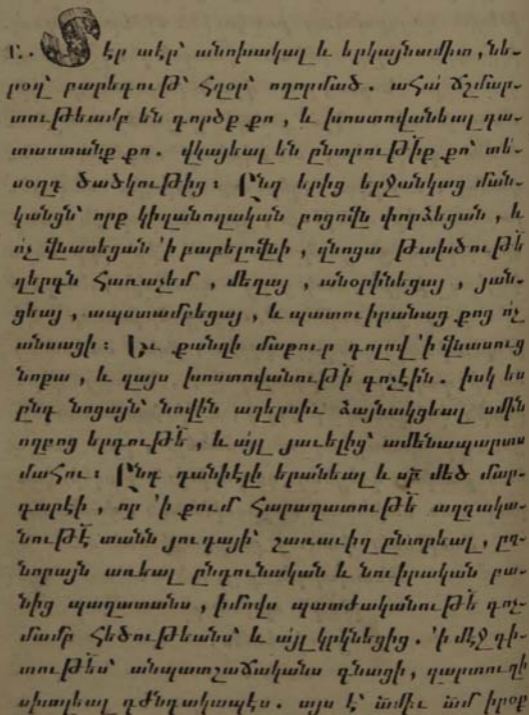 Բ. Տէր տէր՝ անոխակալ և երկայնամիտ, նե-
րօղ՝ բարեգութ՝ հզօր՝ ողորմած. ահա ճշմար-
տութեամբ են գործք քո, և խոստովանեալ դա-
տաստանք քո. վկայեալ են ընտրութիք քո՝ տե-
սօղդ ծածկութից: Ընդ երից երջանկաց ման-
կանցն՝ որք կիզանողական բոցովն փորձեցան, և
ոչ վնասեցան ՚ի բաբելովնի, զնոցա թախծութե
զերգն հառաչեմ, մեղայ, անօրինեցայ, յան-
ցեայ, ապստամբեցայ, և պատուիրանաց քոց ոչ
անսացի: Եւ քանզի մաքուր գոլով ՚ի վնասուց
նոքա, և զայս խոստովանութի գոչէին. իսկ ես
ընդ նոցայն՝ նովին աղերսիւ ձայնակցեալ ամին
ողբոց երգութե, և այլ յաւելից՝ ամենապարտս
մահու: Ընդ դանիէլի երանեալ և սբ մեծ մար-
գարէի, որ ՚ի քում հարազատութե ազգակա-
նութէ տանն յուդայի՝ շառաւիղ ընտրեալ, ըզ-
նորայն առեալ ընդունական և նուիրական բա-
նից պաղատանս, իմովս պատժականութե գոչ-
մամբ հեծութեանս՝ և այլ կրկնեցից. ՚ի մէջ գի-
տութեs՝ անպատշաճականս գնացի, զարտուղի
սխալեալ դժնդակապէս. այս է՝